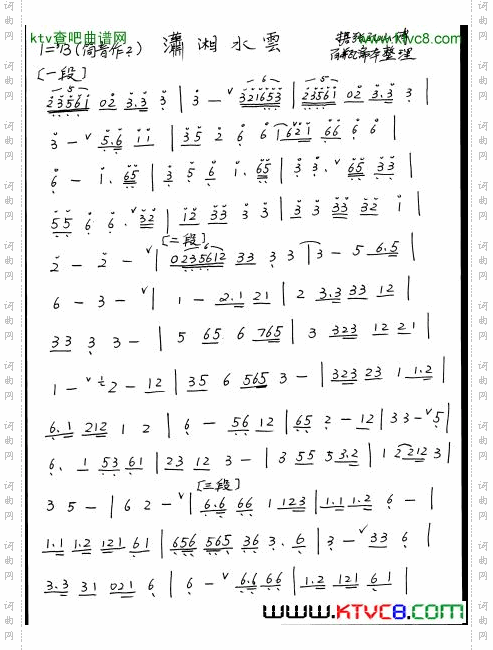 ktv查吧曲谱网
www.ktvc8.com
1=♭B(筒音作2) 瀟湘水雲
[一段]
23561 02 3.3 3 | 3 - ˅ 321653 | 23561 02 3.3 3 |
3 - ˅ 5.6 11 | 35 2 6 6 | 1621 66 6 6 |
6 - 1. 65 | 3 5 6 1. 65 | 3 3. ˅ 65 33 |
55 6 6. ˅ 32 | 12 33 3 3 | 3 33 32 1 |
[二段]
2 - 2 - ˅ | 0235612 33 3 3 | 3 - 5 6.5 |
6 - 3 - ˅ | 1 - 2.1 21 | 2 3.3 33 12 |
33 3 3 - | 5 65 6 765 | 3 323 12 21 |
1 - ˅ 2 - 12 | 35 6 565 3 - | 323 23 1 1.2 |
6.1 212 1 2 | 6 - 56 12 | 65 2 - 12 | 33 - ˅ 5 |
6. 1 53 61 | 23 12 3 - | 3 55 5 3.2 | 12 212 3 |
[三段]
3 5 - | 6 2 - ˅ | 6.6 66 1 123 | 1.1 1.2 6 - |
1.1 1.2 121 61 | 656 565 36 3. 6 | 3 - ˅ 33 6 |
3.3 31 021 6 | 6 - ˅ 6.6 66 | 1.2 121 61 |
www.KTVC8.com
词曲网
词曲网